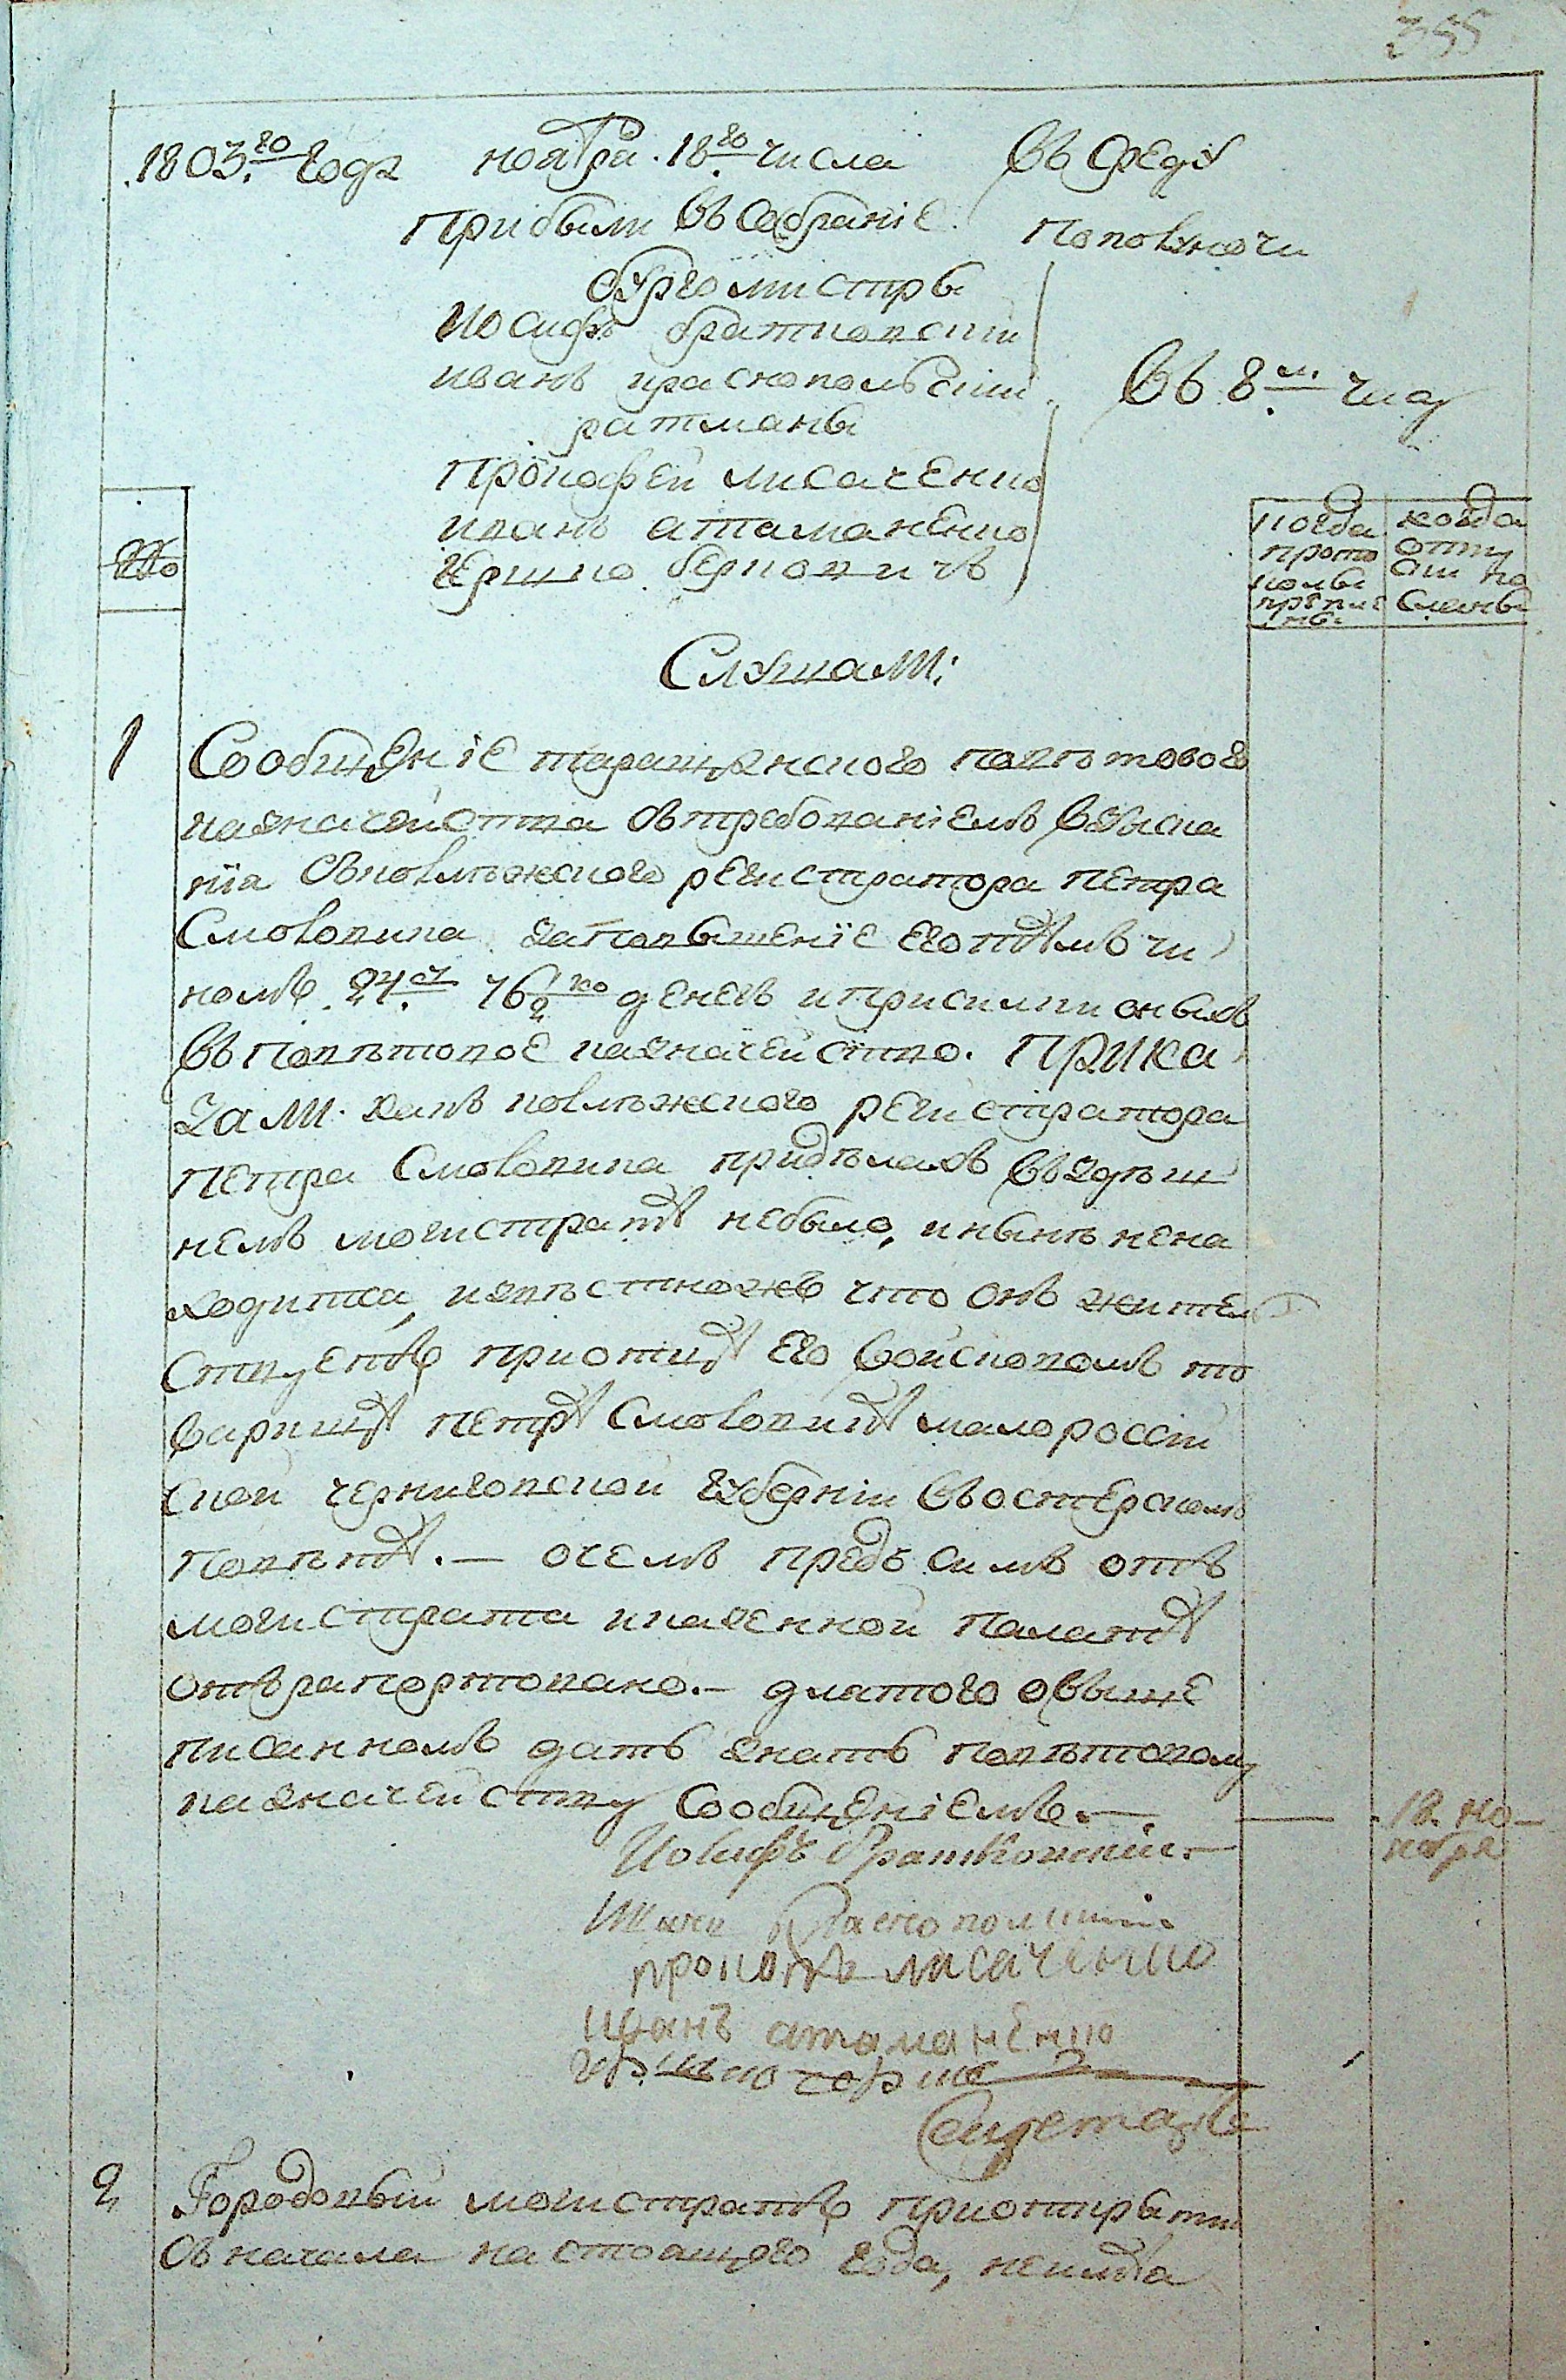 355
1803.го года ноября. 18го числа въ среду
прибыли въ собраніе. пополуночи
бургомистры
Іосифъ братковскій
иванъ краснопольскій въ 8м. часу
ратманы
прокофей лисаченко
иванъ атаманенко
гершко берковичъ
№ когда прото колы крепле ны когда отпу ски по сланы
Слушали:
1 Сообщеніе таращанского повѣтового
казначейства стребованіемъ взыска
нія сколѣжского регистратора петра
Смоловика заповышеніе его тѣмъ чи
номъ. 24 76 1/2 ко денегъ и присилки оныхъ
въ повѣтовое казначейство. Прика
зали. какъ колѣжского регистратора
петра Смоловика придѣлахъ въ здѣш
немъ магистратѣ небыло, и нынѣ нена
ходитса, извѣстножъ что онъ жител
ствуетъ приотцѣ его войсковомъ то
варищѣ петрѣ Смоловикѣ малоросси
ской черниговской губерніи въ остерскомъ
повѣтѣ. — очемъ предъ симъ отъ
магистрата и казенной палатѣ
отърапортовано. — длятого овыше
писанномъ дать знать повѣтовому
казначейству Сообщеніемъ. — 18. но
ноября
Іосифъ Братковскій
Иванъ Краснопольскій
прокофей лисаченко
иванъ атаманенко
2 Городовый магистратъ приоткрытіи
съ начала настоящого года, неимѣа